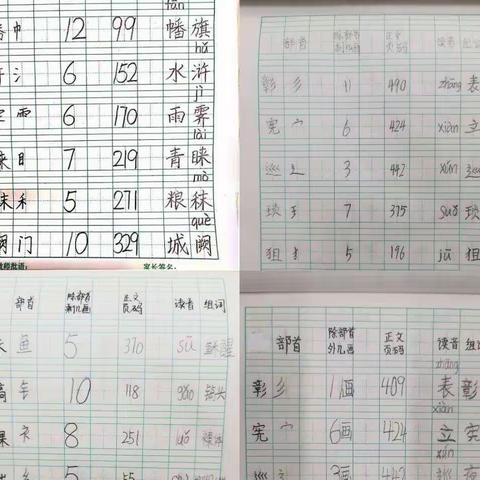 fān
巾 12 99 幡旗
hǔ
氵 6 152 水浒
jì
雨 6 170 雨霁
lài
目 7 219 青睐
mò
禾 5 271 粮秣
què
门 10 329 城阙
教师批语: 家长签名:
部首 除部首剩几画 正文页码 读音
彰 彡 11 490 zhāng 表
宪 宀 6 424 xiàn 立
巡 辶 3 442 xún 巡
琐 王 7 375 suǒ
狙 犭 5 196 jū 狙
部首 除部首剩几画 正文页码 读音 组词
鱼 5 310 sū
钅 10 118 gǎo 镐头
衤 8 251 luǒ 裸体
部首 除部首外几画 正文页码 读音
zhāng
彰 彡 11画 409 表彰
xiàn
宪 宀 6画 424 立宪
xún
巡 3画 442 巡夜